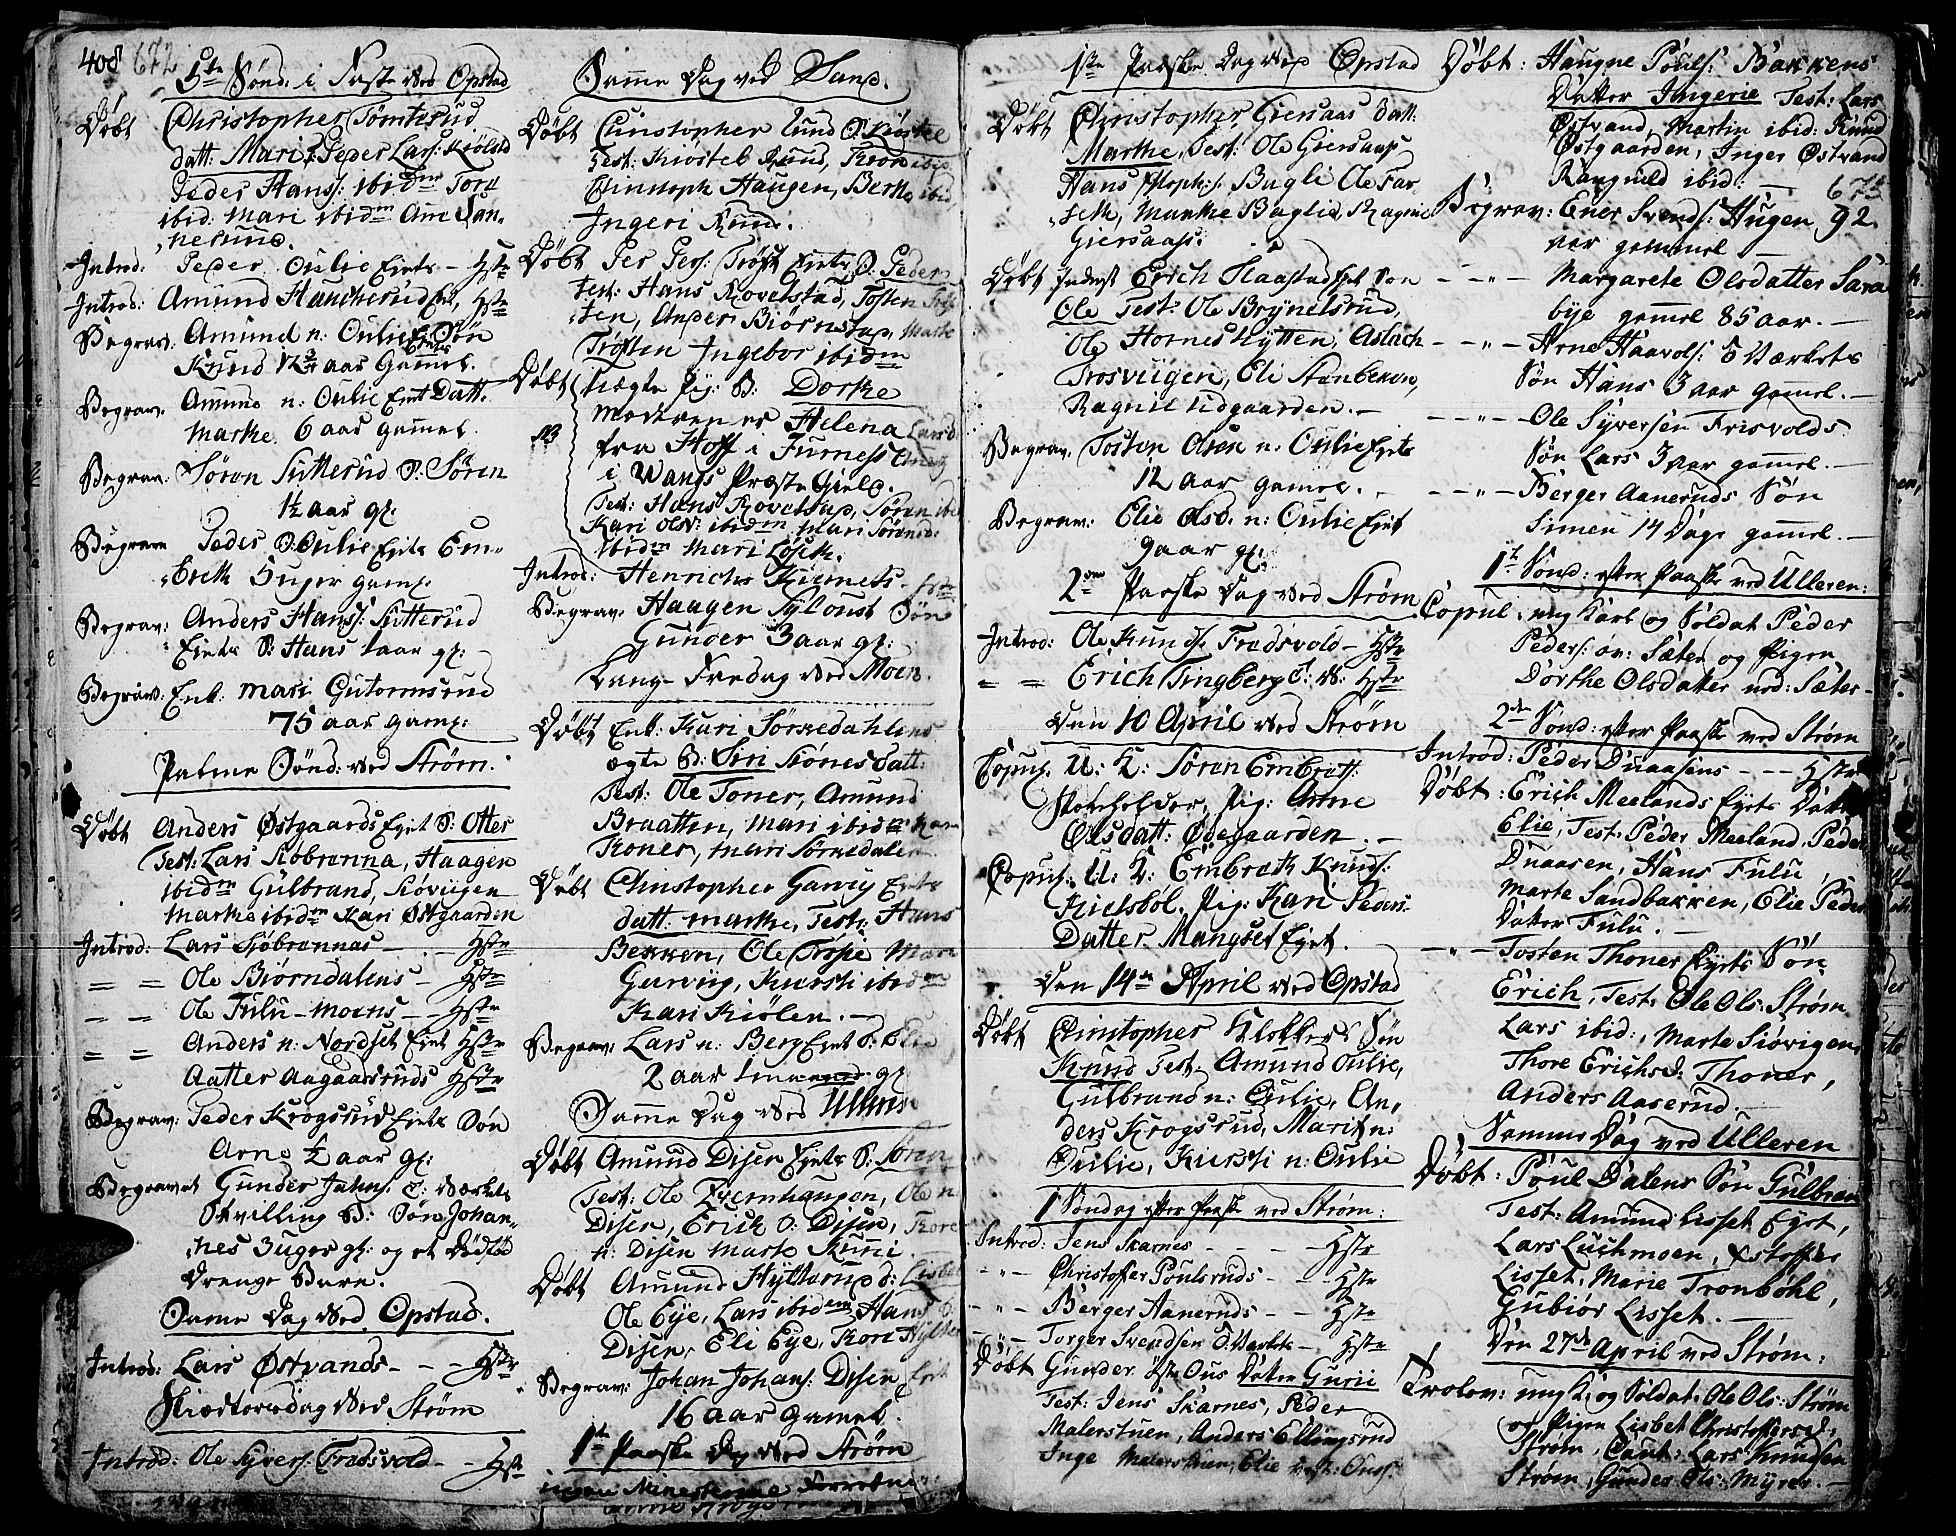 408 672
5te Sönd: i Faste ved Opstad
Döbt Christopher Tömterud
datt: Mari T: Peder Lars: Kiölstad
Peder Hans: ibidm Tore
ibid: Mari ibidm Ane San-
nerud.
Introd: Peder Oulie Eiets - Hstr
Introd: Amund Haucherud Ei, Hstr
Begrav: Amund n: Oulie Eiets Sön
Knud aar Gamel.
Begrav. Amund n: Oulie Eiet Datt.
Marthe 6 aar gamel.
Begrav. Sören Sutterud S: Sören
1½ aar gl:
Begrav Peder Oulie Eiets Em-
brith 5 uger gaml:
Begrav: Anders Hans: Sutterud
Eiets S: Hans 1 aar gl:
Begrav. Enk: Mari Gutormsrud
75 aar gaml:
Palme Sönd: ved Ström.
Döbt Anders Östgaards Eiet S: Otter
Test: Lars Siöbrenna, Haagen
ibidm Gulbrand Siöviigen
Marthe ibidm Kari Östgaarden
Introd: Lars Siöbrennas - Hstr
= = Ole Biörndalens - Hstr
= = Ole Fulu-Moens - Hstr
= = Anders n: Nordset Eiet Hstr
Aatter Aagaardsruds Hstr
Begrav: Peder Krogsrud Eiets Sön
Arne ½ aar gl:
Begravet Gunder Jahns: ved Værkets
Tvilling B: Sön Johan-
nes 3 uger gl: og et Dödföd
Drenge Barn.
Samme Dag ved Opstad.
Introd: Lars Östvands - - - Hstr
Skiertorsdag ved Ström
Introd: Ole Syvers: Fredsvold - - Hstr
Samme Dag ved Sand.
Döbt Christopher Lund D: Kirstie
Test: Kiöstel Rund, Kron ibid
Christoph Haugen, Berthe ibid
Ingeri Rund.
Döbt Per Pers: Tröst Eiets S: Peder
Test: Hans Rovelstad, Tosten
ten, Anders Biörnstad, Marthe
Trösten Ingebor ibidm
Döbt Uægte Pig: B: Dorthe
Moderen er Helena Larsd:
NB fra Hoff i Furness Annex
i Wangs Præste Gield.
Test: Hans Rovelstad, Sören ibid
Kari Olsd: ibidm Mari Sörensd:
ibidm Mari Löseth.
Introd: Henrichs Kiernets - Hstr
Begrav: Haagen Syloust Sön
Gunder 3 aar gl:
Lang-Fredag ved Moen.
Döbt Enk: Kari Sörkedahlens
ægte B: Siri Siönes Datt:
Test: Ole Toner, Amund
Braatten, Mari ibidm Kari
Toner, Mari Sörkedalen
Döbt Christopher Garvig Eiets
datt: Marthe, Test: Hans
Bekken, Ole Troshie Mari
Garviig, Kiersti ibidm
Kari Kiölen.
Begrav: Lars n: Berg Eiet D: Elie
2 aar gl
Samme Dag ved Ullern
Döbt Amund Disen Eiets S: Sören
Test: Ole Tyernhaugen, Ole n:
Disen, Erich ö: Disen, Tore
n: Disen Marte Kunni
Döbt Amund Hytterud D: Lisbet
Ole Eye, Lars ibidem Hans ö:
Disen, Eli Eye, Kari Hytte
Begrav: Johan Johans: Disen
16 aar gamel.
1te Paaske Dag ved Ström
ingen Ministerial Forretning
1te Paaske Dag ved Opstad
Döbt Christopher Giersaas datt:
Marthe, Test: Ole Giersaas
Hans Kstoph: Baglie Ole Far
seth, Marthe Baglie, Ragnil
Giersaas.
Döbt Inderst Erich Haastad Sön
Ole Test: Ole Brynelsrud,
Ole Hornes Hytten, Aslach
Trosviigen, Eli Stenbechen,
Ragnil Lidgaarden. -
Begrav. Tosten Olsen n: Oulie Eiets
12 aar gamel. -
Begrav: Elie Olsd. n: Oulie Eiet
9 aar gl:
2den Paaske Dag ved Ström
Introd: Ole Knuds: Fredsvold - Hstr
= = Erich Tingberg S: V: Hstr
Den 10 April ved Ström
Copul: U: K: Sören Embrets:
Pladsholder, Pig: Anne
Olsdatt: Ödegaarden. -
Copul: U: K: Embrek Knuds:
Kielsböl. Pig: Kari Peders
Datter Mangset Eiet.
Den 14de April ved Opstad
Döbt Christopher Klokkers Sön
Knud Test: Amund Oulie,
Gulbrand n: Oulie, An-
ders Krogsrud, Marit n:
Oulie, Kiersti n: Oulie
1 Söndag efter Paaske ved Ström:
Introd: Jens Skarnes - - - Hstr
- " - Christoffer Poulsruds - - Hstr
- " - Berger Aaneruds - - Hstr
- " - Torger Svendsen ö: Værkets - Hstr
Döbt Gunder Östr Ous Datter Gurii
Test: Jens Skarnes, Peder
Malerstuen, Anders Ellingsrud
Inge Malerstuen, Elie Ous:
Döbt: Haugne Pouls: Bakkens
Datter Ingerie Test: Lars
Östvand, Martin ibid: Knud
Östgaarden, Inger Östvand
Rangnild ibid: - 673
Begrav: Ener Svends: Hugen 92
aar gammel -
- - " - Margarete Olsdatter Sara
bye gamel 85 aar. -
- - " - Arne Haavols: S: Værkets
Sön Hans 3 aar gamel. -
- - " - Ole Syversen Frisvolds
Sön Lars 3 aar gamel. -
- - " - Berger Aaneruds Sön
Simen 14 Dage gamel. -
1te Sönd: efter Paaske ved Ulleren:
Copul: ung Karl og Soldat Peder
Peders: öv: Sæter og Pigen
Dorthe Olsdatter ned: Sæter -
2den Sönd: efter Paaske ved Ström
Introd: Peder Duaasens - - - Hstr
Döbt: Erich Meelands Eyets Datter
Elie, Test: Peder Meeland, Peder
Duaasen, Hans Fulu,
Marte Sandbakken, Elie Peder
Datter Fulu. -
- " - Tosten Thoner Eyets Sön
Erich, Test: Ole Ols: Ström
Lars ibid:, Marte Siövigen,
Thore Erichsd: Thoner,
Anders Aaserud.
Samme Dag ved Ulleren
Döbt: Poul Dalens Sön Gulbran
Test: Amund Lisset Eyet,
Lars Luchmoen, Kstoffer
Lisset, Marie Tronböhl,
Gubiör Lisset. -
Den 27de April ved Ström:
Trolov: ung K: og Soldat Ole Ols: Ström
og Pigen Lisbet Christoffersd:
Ström, Caut: Lars Knudsen
Ström, Gunder Ols: Myrer. -